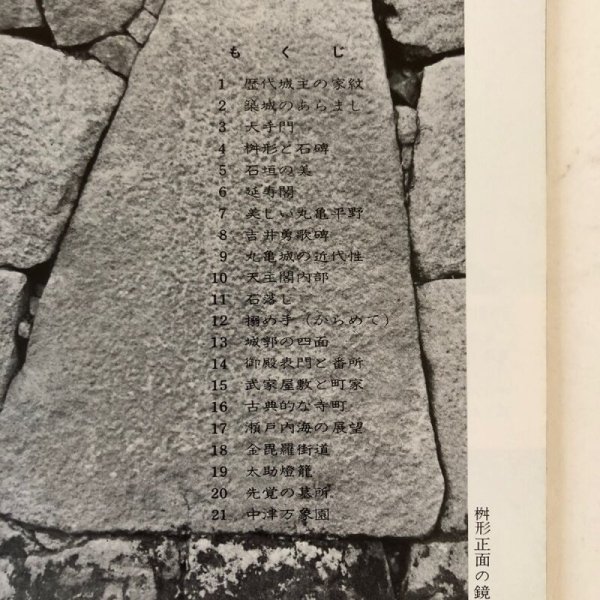 もくじ
1 歴代城主の家紋
2 築城のあらまし
3 大手門
4 桝形と石碑
5 石垣の美
6 延寿閣
7 美しい丸亀平野
8 吉井勇歌碑
9 丸亀城の近代性
10 天主閣内部
11 石落し
12 搦め手（からめて）
13 城郭の四面
14 御殿表門と番所
15 武家屋敷と町家
16 古典的な寺町
17 瀬戸内海の展望
18 金毘羅街道
19 太助燈籠
20 先覚の墓所
21 中津万象園
桝形正面の鏡